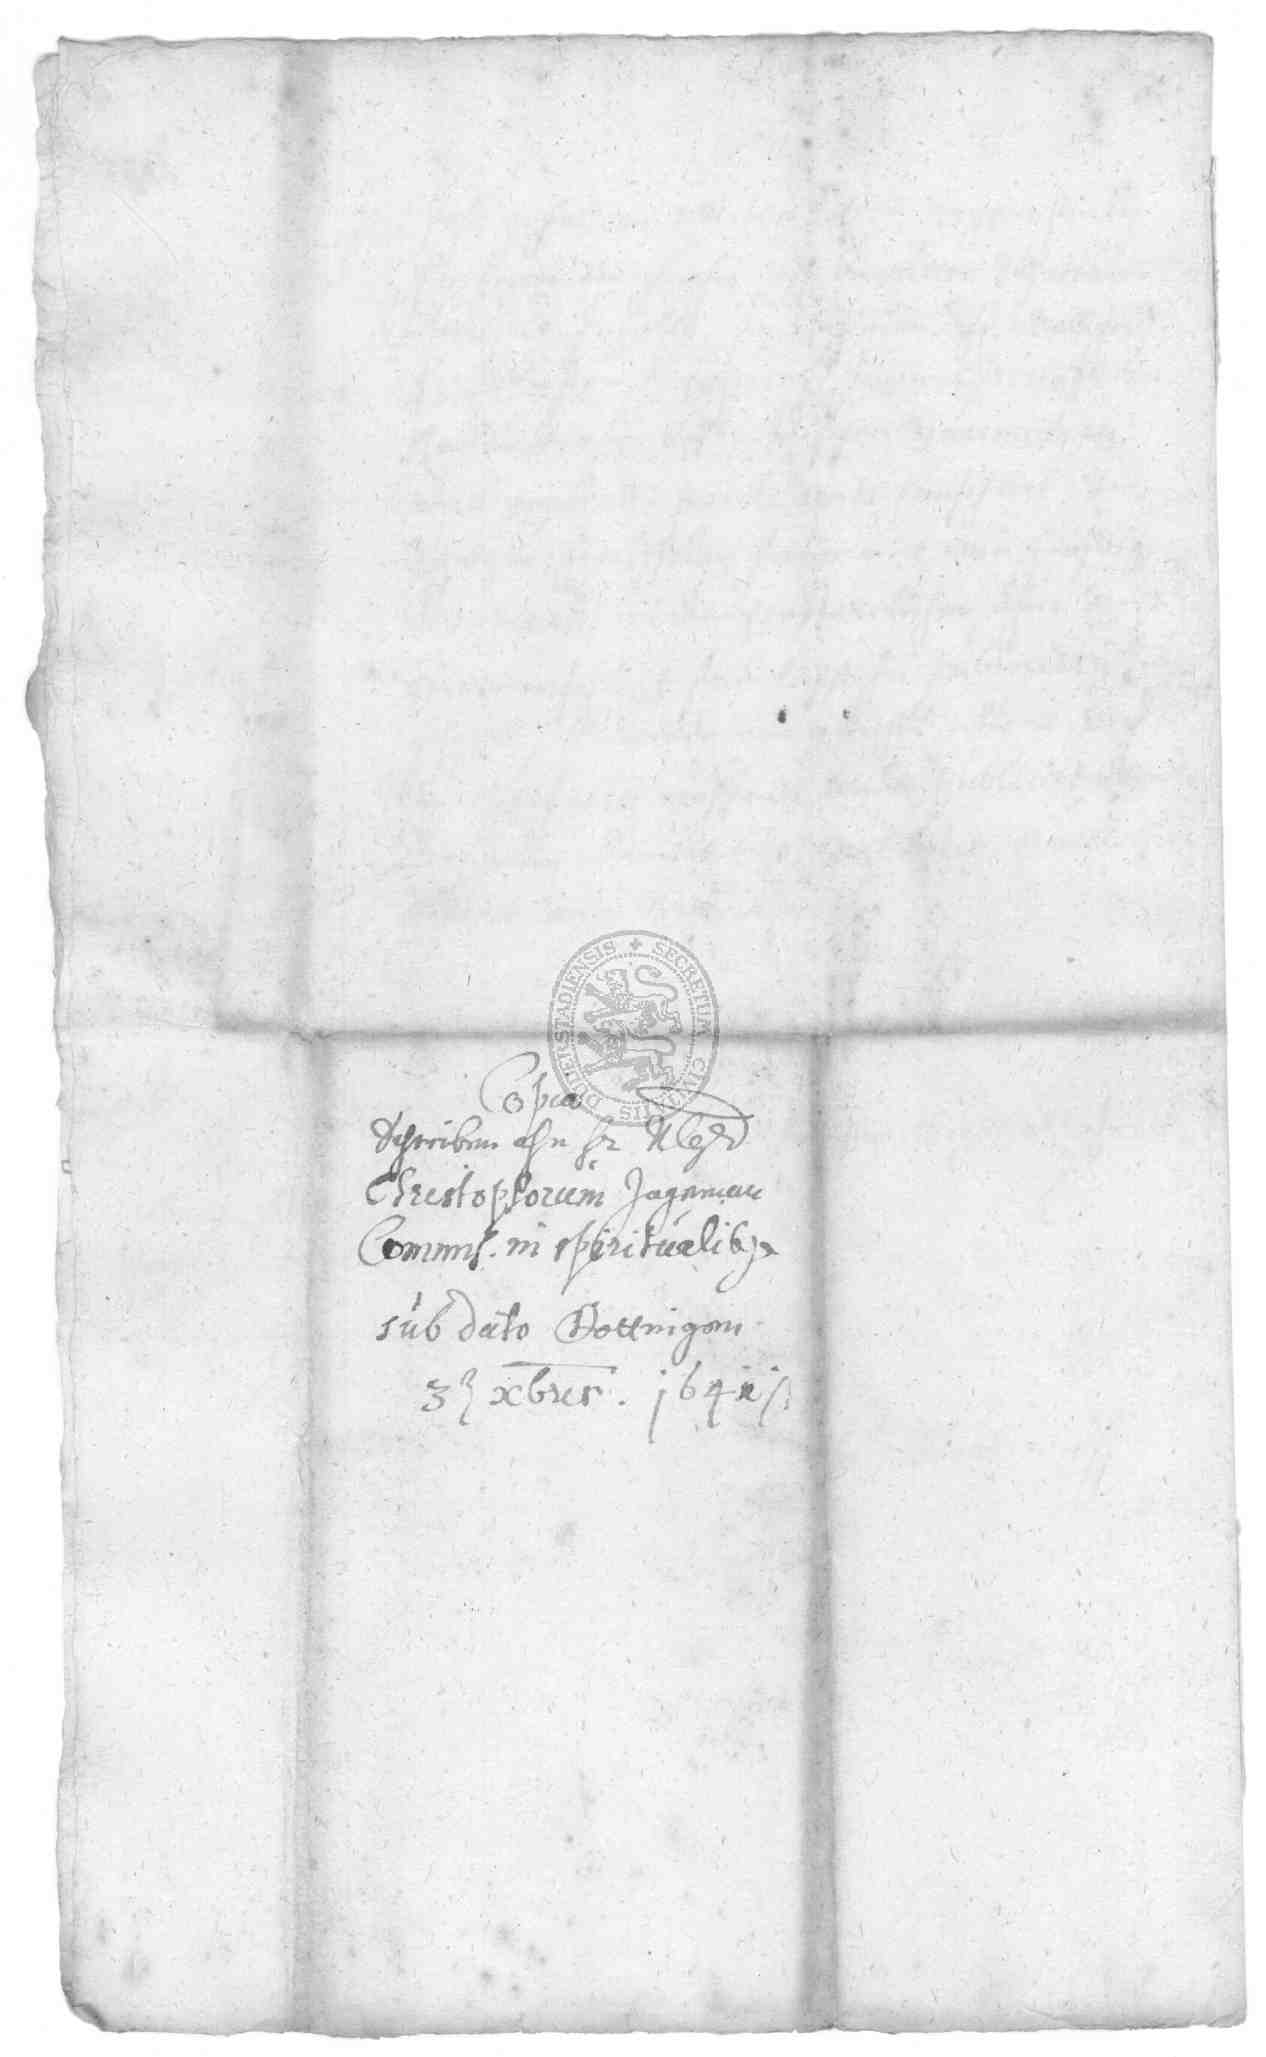 SECRETUM CIVITATIS DUDERSTADIENSIS
Copia
Schreiben ahn Hr
Christophorum Jageman
Commiss. in spiritualibq
sub dato Gottingen
3 xbris. 164